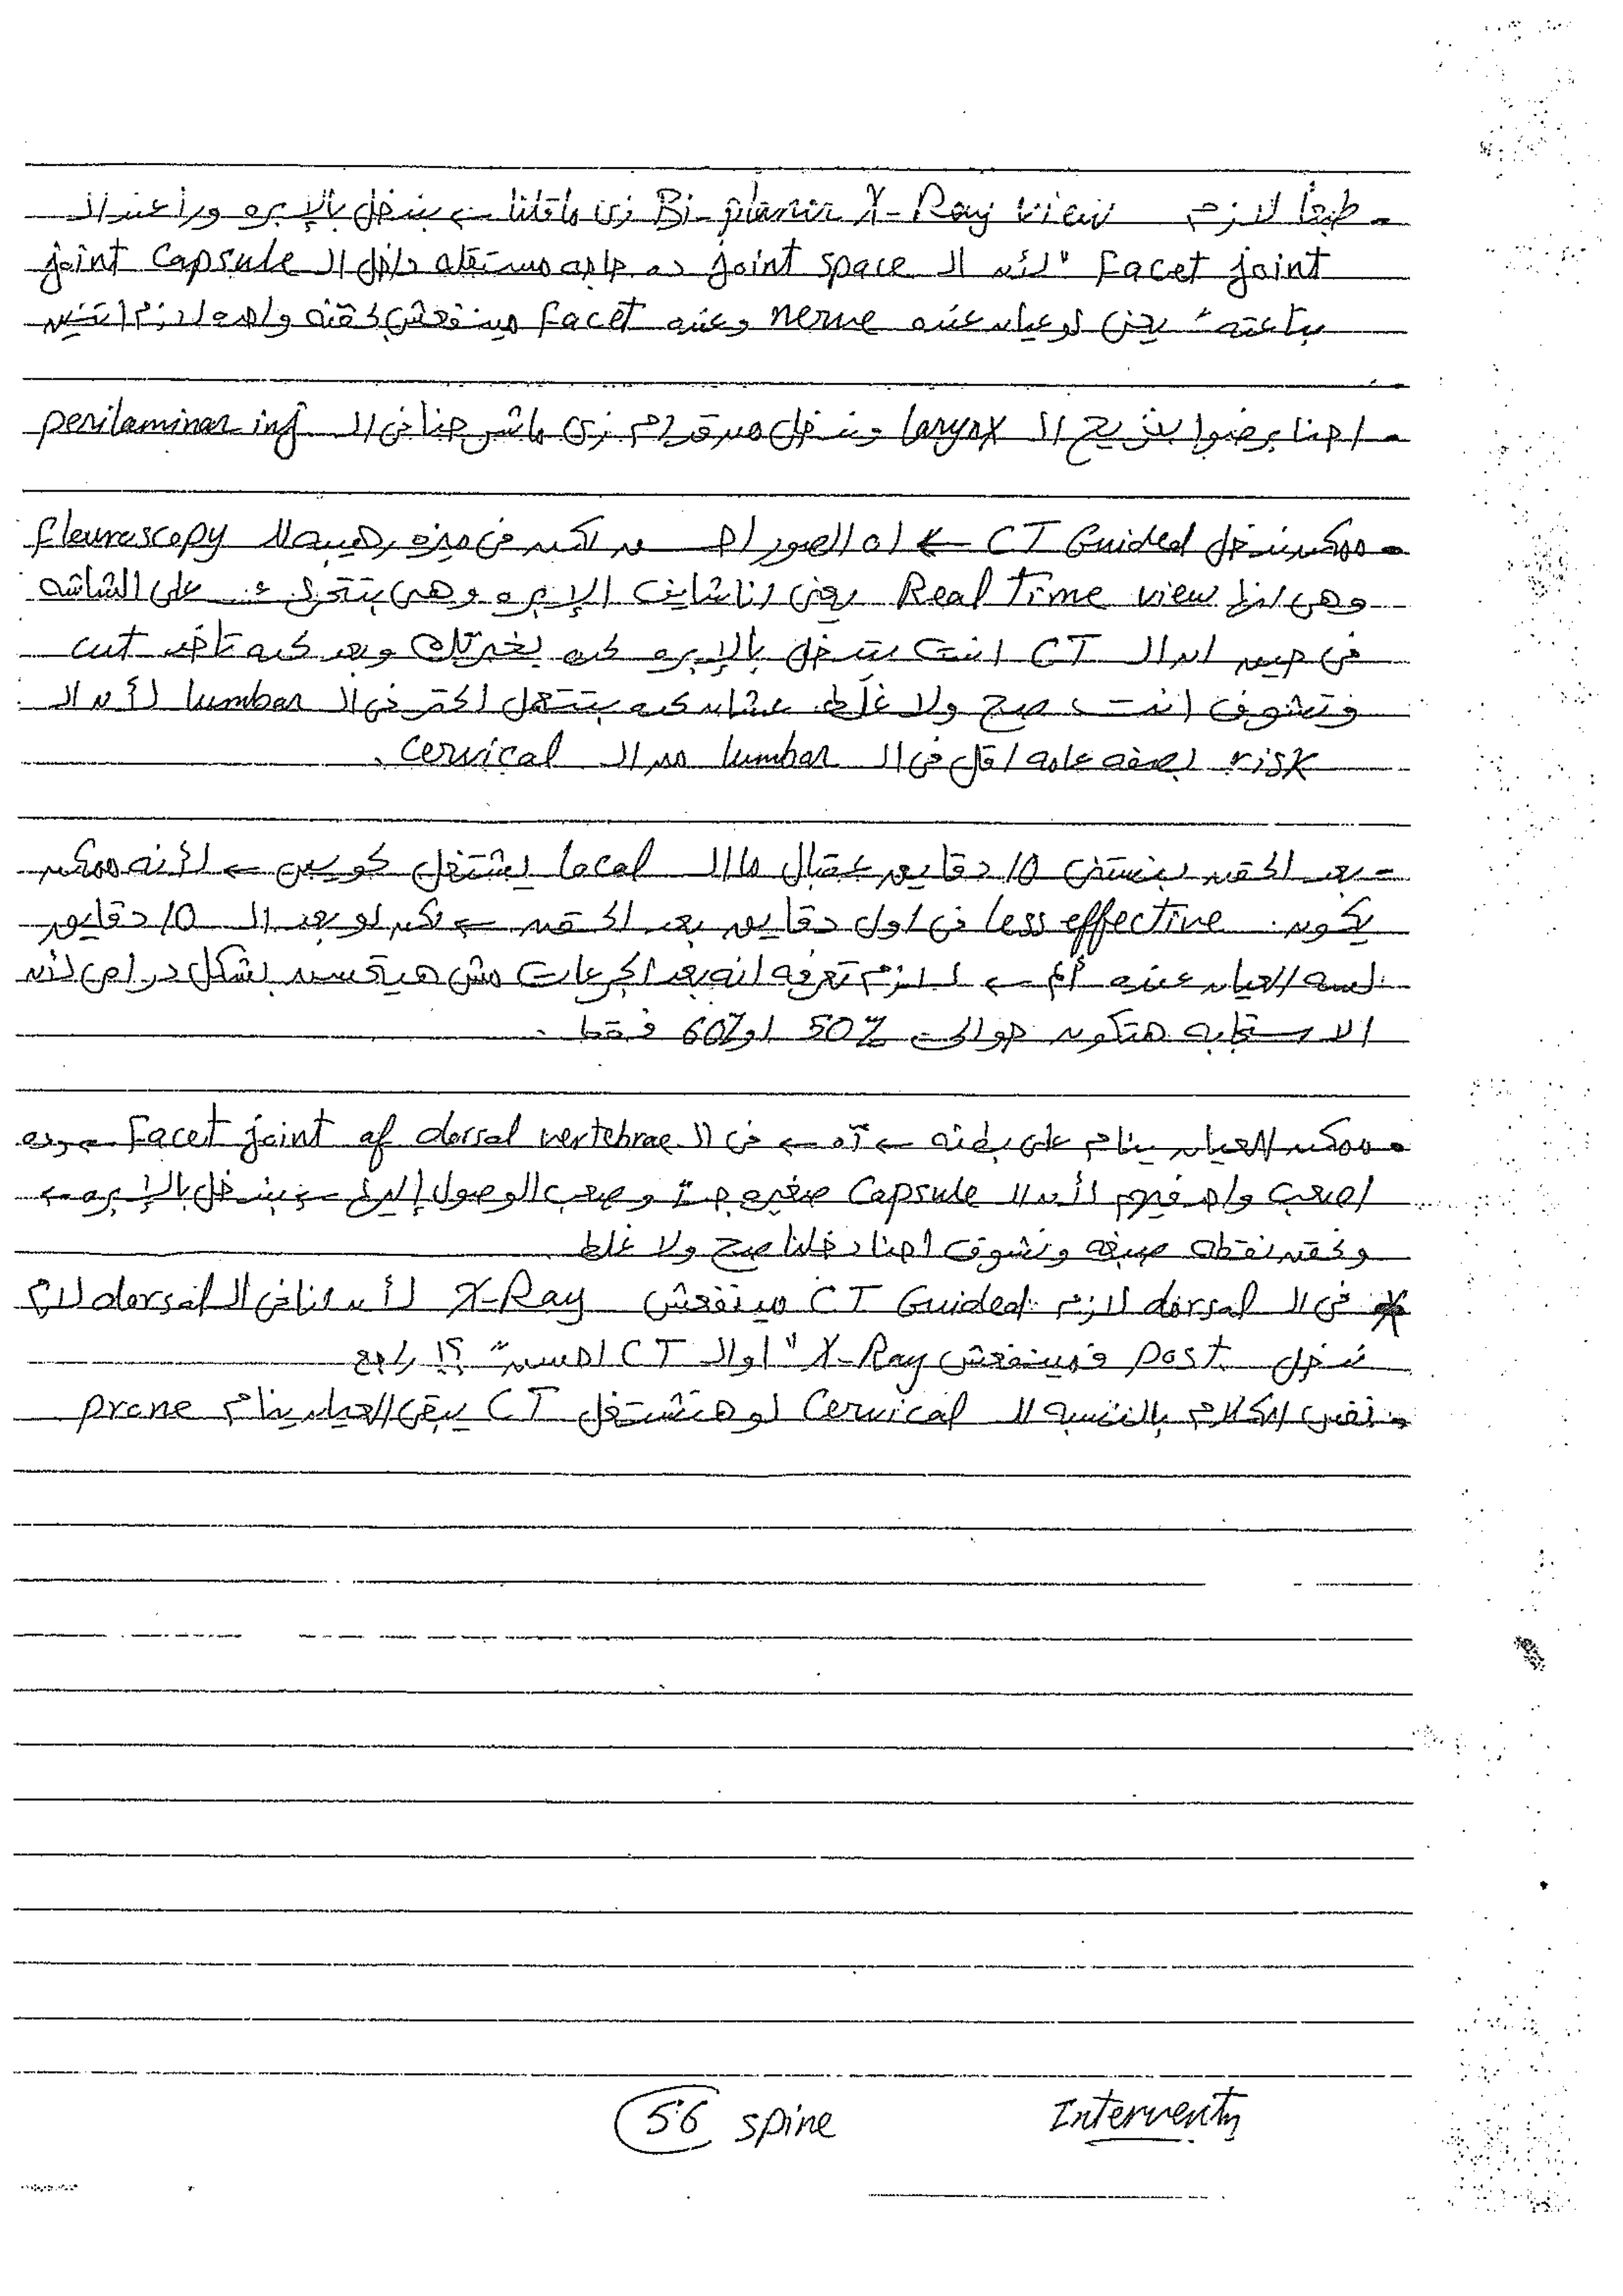 - طبعاً لازم Bi-planar X-Ray view زى ماقلنا ← بندخل بالإبره ورا عند الـ
Facet joint "لأن الـ joint space ده حاجه مستقله داخل الـ joint capsule
بتاعته" يعنى لو عيان عنده nerve وعنده Facet مينفعش حقنه واحده لازم اتنين
- احنا برضوا بنزيح الـ larynx وبندخل من قدام زى ماشرحنا فى الـ perilaminar inj
- ممكن ندخل CT Guided ← اه الصور احسن لكن فى ميزه رهيبه للـ fleuroscopy
وهى انها Real Time view يعنى انا شايف الإبره وهى بتتحرك على الشاشه
فى حين ان الـ CT انت بتدخل بالإبره كده بخبرتك وبعد كده تاخد cut
وتشوف انت صح ولا غلط عشان كده بتتعمل اكتر فى الـ lumbar لأن الـ
risk بصفه عامه اقل فى الـ lumbar من الـ cervical .
- بعد الحقن بنستنى 10 دقايق عقبال ما الـ local يشتغل كويس ← لأنه ممكن
يكون less effective فى اول دقايق بعد الحقن ← لكن لو بعد الـ 10 دقايق
لسه العيان عنده ألم ← لازم تعرفه انه بعد الجرعات مش هيتحسن بشكل درامى لأن
الاستجابه هتكون حوالى 50% او 60% فقط .
- ممكن العيان ينام على بطنه ← آه ← فى الـ Facet joint of dorsal vertebrae ← وده
اصعب واحد فيهم لأن الـ Capsule صغير جداً وصعب الوصول إليه ← بندخل بالإبره ←
ونحقن نقطه صبغه ونشوف احنا دخلنا صح ولا غلط
* فى الـ dorsal لازم CT Guided مينفعش X-Ray لأن هنا فى الـ dorsal لازم
ندخل post فمينفعش X-Ray "او الـ CT احسن" ؟! راجع
- نفس الكلام بالنسبه للـ Cervical لو هتشتغل CT يبقى العيان ينام prone
56 spine Interventn